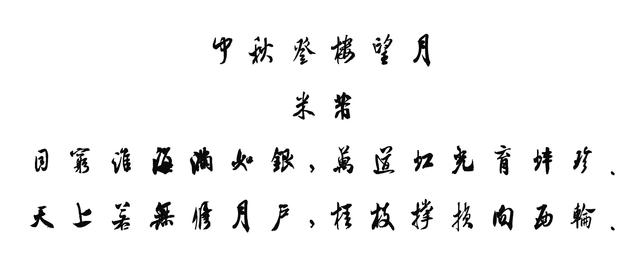 中秋登樓望月
米芾
目窮淮海滿如銀，萬道虹光育蚌珍．
天上若無修月戶，桂枝撐損向西輪．